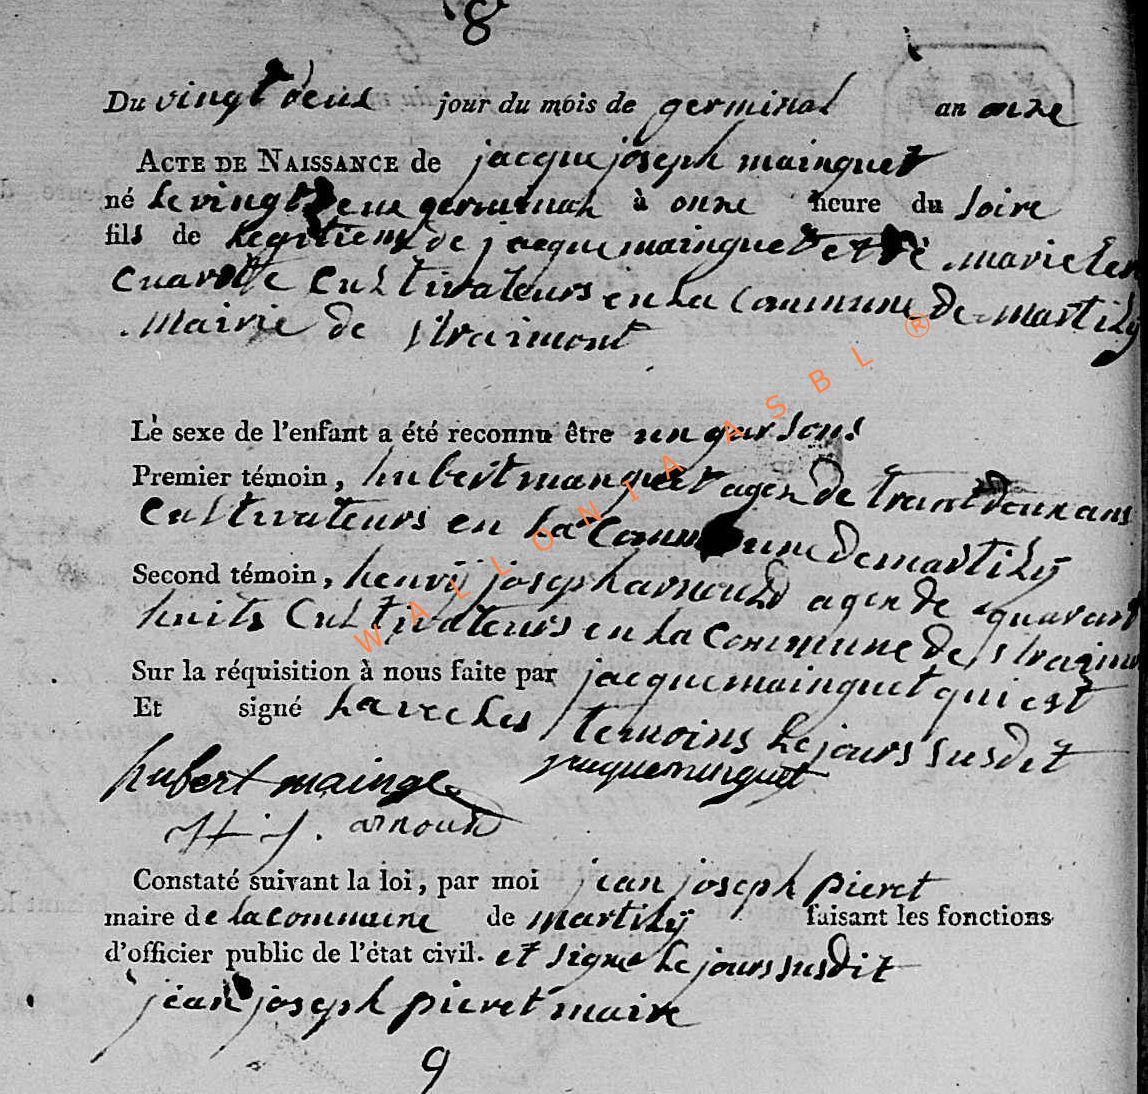 8
Du vingt deus jour du mois de germinal an onze
ACTE DE NAISSANCE de jacque joseph mainguet
né le vingt deus germinal à onze heure du soire
fils de legitieme de jacque mainguet et de marie
Cultivateurs en la Commune de martily
Mairie de straimont
Le sexe de l'enfant a été reconnu être un garsons
Premier témoin, hubert manguet agez de trent deux ans
Cultivateurs en la Commune de martily
Second témoin, henry joseph arnould agez de quarant
huits Cultivateurs en la Commune de straimon
Sur la réquisition à nous faite par jacque mainguet qui est
Et signé lavec les temoins le jours susdit
hubert mainge jacque minguet
H. j. arnould
Constaté suivant la loi, par moi jean joseph pieret
maire de la commune de martily faisant les fonctions
d'officier public de l'état civil. et signe le jours susdit
jean joseph pieret maire
9
WALLONIA ASBL ®